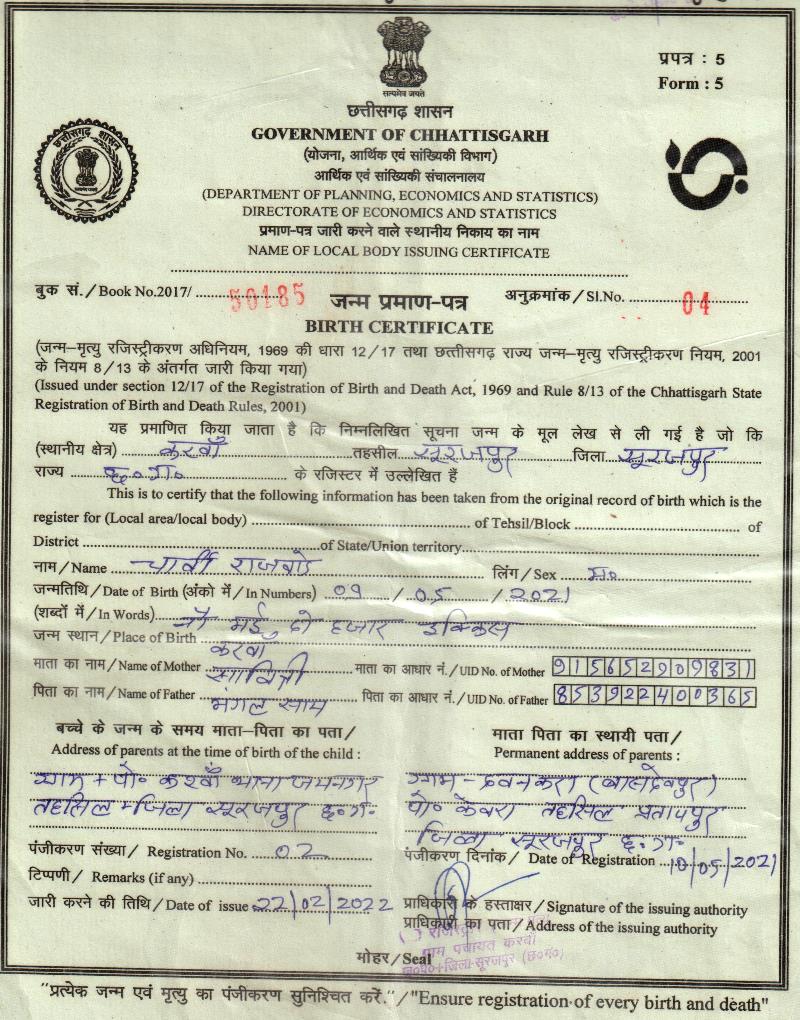 सत्यमेव जयते
प्रपत्र : 5
Form : 5
छत्तीसगढ़ शासन
छत्तीसगढ़ शासन
GOVERNMENT OF CHHATTISGARH
(योजना, आर्थिक एवं सांख्यिकी विभाग)
आर्थिक एवं सांख्यिकी संचालनालय
(DEPARTMENT OF PLANNING, ECONOMICS AND STATISTICS)
DIRECTORATE OF ECONOMICS AND STATISTICS
प्रमाण-पत्र जारी करने वाले स्थानीय निकाय का नाम
NAME OF LOCAL BODY ISSUING CERTIFICATE
बुक सं./Book No.2017/ 50185 जन्म प्रमाण-पत्र अनुक्रमांक/Sl.No. 04
BIRTH CERTIFICATE
(जन्म–मृत्यु रजिस्ट्रीकरण अधिनियम, 1969 की धारा 12/17 तथा छत्तीसगढ़ राज्य जन्म–मृत्यु रजिस्ट्रीकरण नियम, 2001
के नियम 8/13 के अंतर्गत जारी किया गया)
(Issued under section 12/17 of the Registration of Birth and Death Act, 1969 and Rule 8/13 of the Chhattisgarh State
Registration of Birth and Death Rules, 2001)
यह प्रमाणित किया जाता है कि निम्नलिखित सूचना जन्म के मूल लेख से ली गई है जो कि
(स्थानीय क्षेत्र) करवाँ तहसील सूरजपुर जिला सूरजपुर
राज्य छ०ग० के रजिस्टर में उल्लेखित हैं
This is to certify that the following information has been taken from the original record of birth which is the
register for (Local area/local body) of Tehsil/Block of
District of State/Union territory
नाम/Name चार्वी राजवाड़े लिंग/Sex म०
जन्मतिथि/Date of Birth (अंको में/In Numbers) 09 / 05 / 2021
(शब्दों में/In Words) नौ मई दो हजार इक्किस
जन्म स्थान/Place of Birth करवाँ
माता का नाम/Name of Mother सावित्री माता का आधार नं./UID No. of Mother 915652909831
पिता का नाम/Name of Father मंगल साय पिता का आधार नं./UID No. of Father 853922400365
बच्चे के जन्म के समय माता-पिता का पता/
Address of parents at the time of birth of the child :
ग्राम + पो० करवाँ थाना जयनगर
तहसिल + जिला सूरजपुर छ०ग०
माता पिता का स्थायी पता/
Permanent address of parents :
ग्राम – (बासदेवपुर)
पो० केवरा तहसिल प्रतापपुर
जिला सूरजपुर छ०ग०
पंजीकरण संख्या/ Registration No. 02
पंजीकरण दिनांक/ Date of Registration 10/05/2021
टिप्पणी/ Remarks (if any)
जारी करने की तिथि/Date of issue 22/02/2022
प्राधिकारी के हस्ताक्षर/Signature of the issuing authority
प्राधिकारी का पता/Address of the issuing authority
ग्राम पंचायत करवाँ
मोहर/Seal
ज०प०+जिला-सूरजपुर (छ०ग०)
"प्रत्येक जन्म एवं मृत्यु का पंजीकरण सुनिश्चित करें."/"Ensure registration of every birth and death"